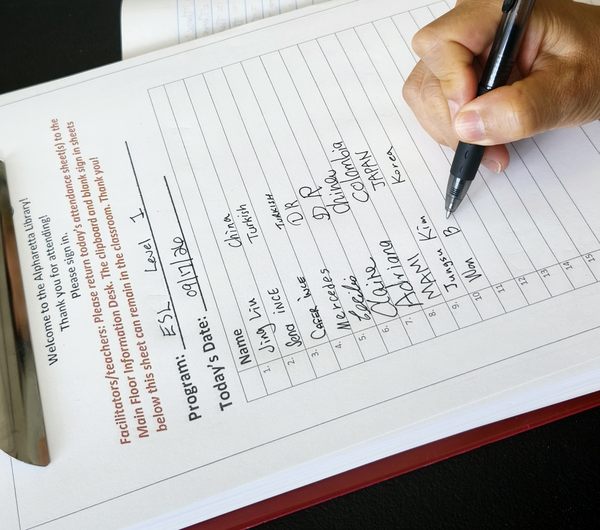 Welcome to the Alpharetta Library!
Thank you for attending!
Please sign in.
Facilitators/teachers: Please return today's attendance sheet(s) to the
Main Floor Information Desk. The clipboard and blank sign in sheets
below this sheet can remain in the classroom. Thank you!
Program: ESL Level 1
Today's Date: 09/17/20
Name
1. Jing Liu China
2. Sena INCE Turkish
3. Cafer INCE TURKISH
4. Mercedes DR
5. Cecilio D R
6. Claire China
7. Adriana Colombia
8. MAMI JAPAN
9. Jungsu Kim Korea
10. Won B
11.
12.
13.
14.
15.